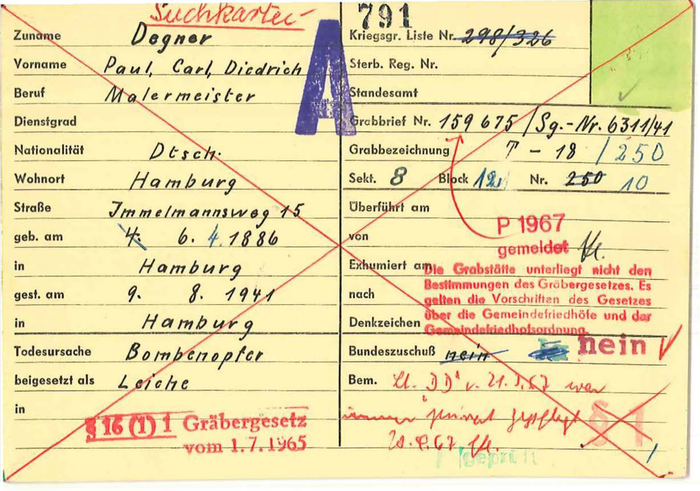 Suchkartei
791
A
Zuname Degner
Vorname Paul, Carl, Diedrich
Beruf Malermeister
Dienstgrad
Nationalität Dtsch.
Wohnort Hamburg
Straße Immelmannsweg 15
geb. am 4. 6. 4. 1886
in Hamburg
gest. am 9. 8. 1941
in Hamburg
Todesursache Bombenopfer
beigesetzt als Leiche
in
§ 16 (1) 1 Gräbergesetz
vom 1.7.1965
Kriegsgr. Liste Nr. 298/326
Sterb. Reg. Nr.
Standesamt
Grabbrief Nr. 159 675 / Sg.-Nr. 6311/41
Grabbezeichnung T - 18 / 250
Sekt. 8 Block 12 Nr. 250 10
Überführt am
P 1967
von gemeldet
Exhumiert am
Die Grabstätte unterliegt nicht den
Bestimmungen des Gräbergesetzes. Es
nach gelten die Vorschriften des Gesetzes
über die Gemeindefriedhöfe und der
Denkzeichen Gemeindefriedhofsordnung.
Bundeszuschuß nein nein
Bem. Lt. DD v. 21.3.67 war
immer privat gepflegt
§ 1
geprüft